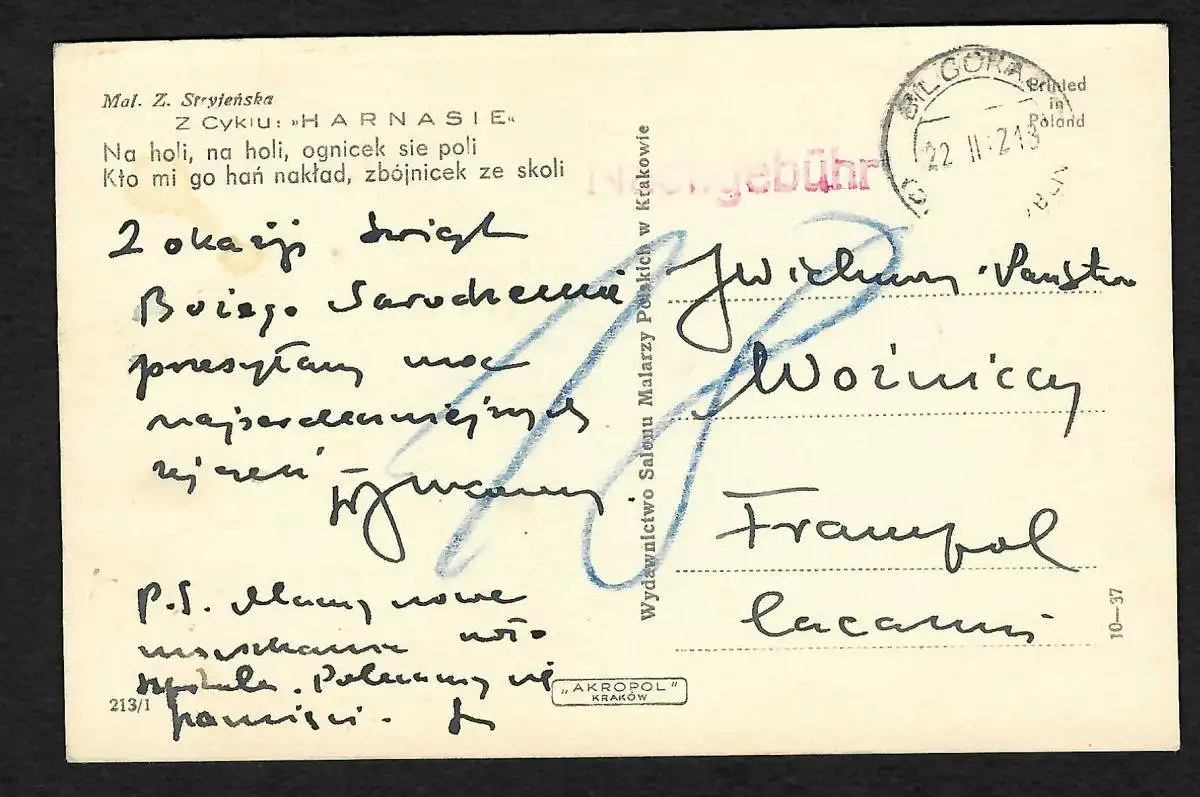 Mal. Z. Stryjeńska
Z Cyklu: »HARNASIE«
Na holi, na holi, ognicek sie poli
Kto mi go hań nakład, zbójnicek ze skoli
Z okazji Świąt
Bożego Narodzenia
przesyłamy moc
najserdeczniejszych
życzeń
P.S. Mamy nowe
mieszkanie koło
szpitala. Polecamy się
pamięci.
213/1
Wydawnictwo Salonu Malarzy Polskich w Krakowie
"AKROPOL"
KRAKÓW
Nachgebühr
18
BIŁGORAJ
22 II
Printed
in
Poland
JWielmożny Państwo
Woźniccy
Frampol
10—37